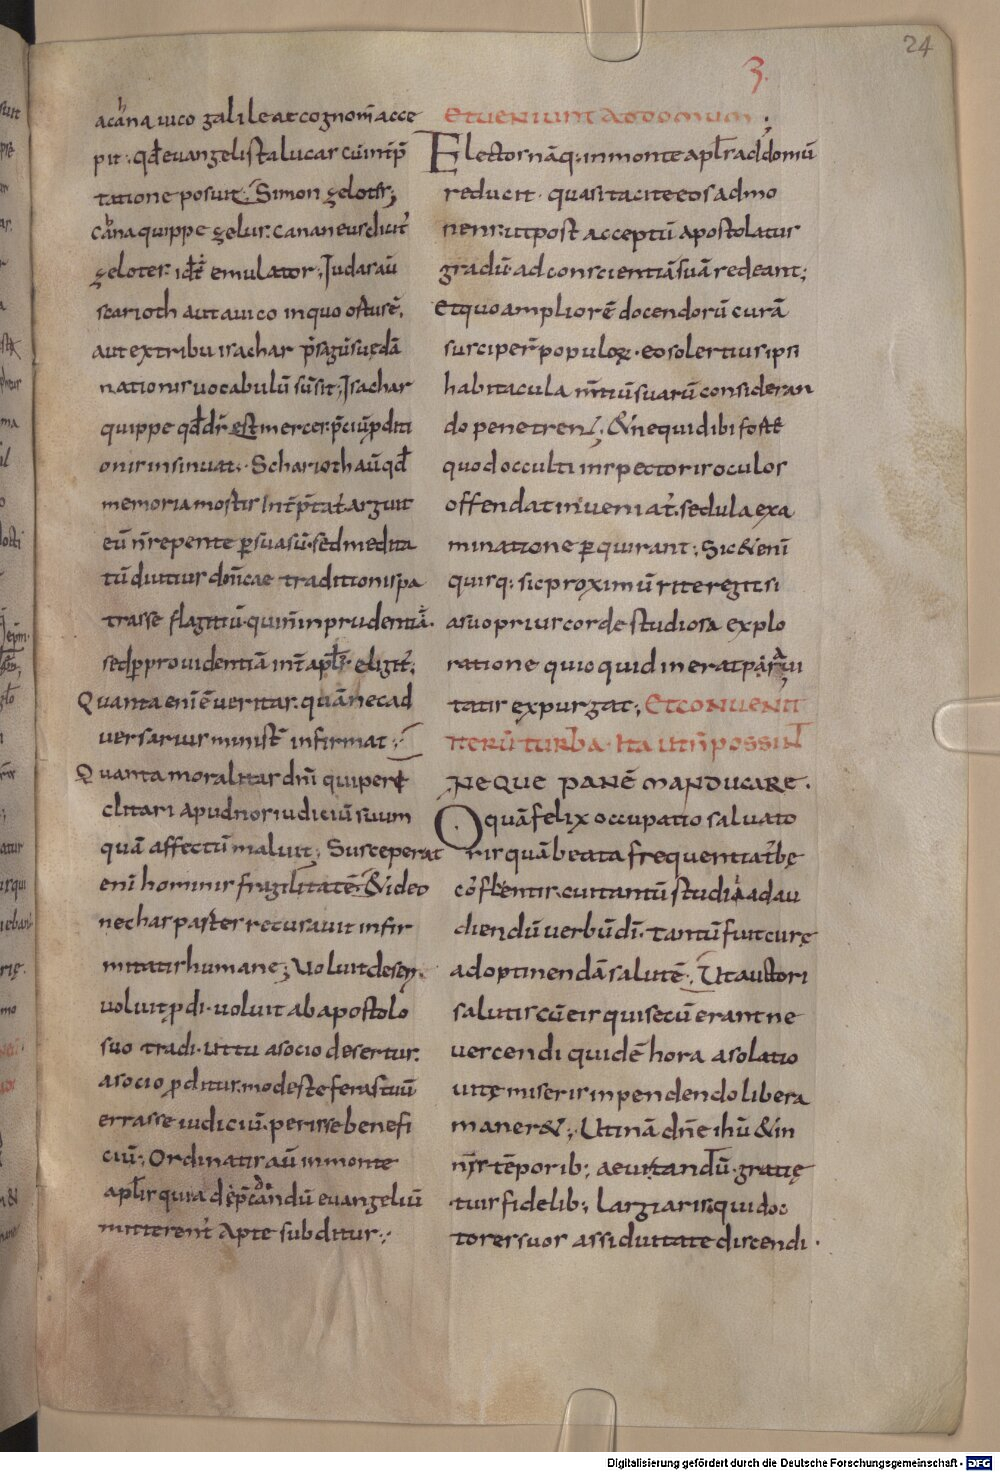 24
3.
acana uico galileae cognom̄ acce
pit; qđ euangelista lucas cū int̄p̄
tatione posuit; Simon zelotes;
cana quippe zelus. cananeus dicit̄
zelotes. idē emulator; Judas aū
scarioth aut a uico in quo ortus ē,
aut ex tribu isachar p̄sagū suę dā
nationis uocabulū sūsit; Isachar
quippe qđ dr̄ est merces. p̄ciū pditi
onis insinuat; Scharioth aū qđ
memoria mortis int̄p̄tat̄. arguit
eū n̄ repente psuasū. sed medita
tū diutius dn̄icae traditionis pa
trasse flagitiū. qui n̄ inprudentiā.
sed p prouidentiā int̄ apl̄os eligit̄;
Quanta enī ē ueritas. quā nec ad
uersarius minist̄ infirmat;
Quanta moralitas dn̄i qui peri
clitari apud nos iudiciū suum
quā affectū maluit; Susceperat
enī hominis fragilitatē; & ideo
nec has partes recusauit infir
mitatis humanę; Voluit deseri.
uoluit pdi. uoluit ab apostolo
suo tradi. ut tu a socio desertus.
a socio pditus. modeste feras tuū
errasse iudiciū. perisse benefi
ciū; Ordinatis aū in monte
apl̄is quia ad p̄dicandū euangeliū
mitterent̄ apte subditur;
ET UENIUNT AD DOMUM;
Electos nāq; in monte apl̄os ad domū
reducit. quasi tacite eos admo
nens. ut post acceptū apostolatus
gradū. ad conscientiā suā redeant;
Et quo ampliorē docendorū curā
susciper̄ populoꝝ. eo solertius ipsi
habitacula m̄tiū suarū consideran
do penetren̄; & ne quid ibi forte
quod occulti inspectoris oculos
offendat inueniat̄. sedula exa
minatione pquirant; Sic & enī
quisq; sic proximū rite regit si
a suo prius corde studiosa explo
ratione quioquid inerat praui
tatis expurgat; ET CONUENIT
ITERŪ TURBA. ITA UT N̄ POSSINT
NEQUE PANĒ MANDUCARE.
O quā felix occupatio saluato
ris quā beata frequentia t̄bę
cōfluentis. cui tantū studii ad au
diendū uerbū dī. tantū fuit curę
ad optinendā salutē; Ut auctori
salutis cū eis qui secū erant ne
uescendi quidē hora a solatio
uitę miseris inpendendo libera
maner&; Utinā dn̄e ihū & in
nr̄is tēporib; aeui tandū. gratię
tuis fidelib; largiaris. qui doc
tores suos assiduitate discendi.
Digitalisierung gefördert durch die Deutsche Forschungsgemeinschaft - DFG